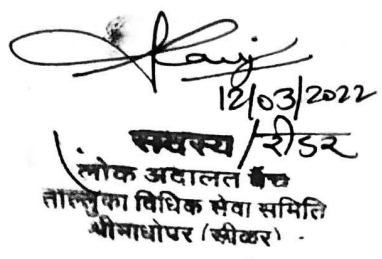 12/03/2022
सदस्य/रीडर
लोक अदालत बैंच
ताल्लुका विधिक सेवा समिति
श्रीमाधोपुर (सीकर)